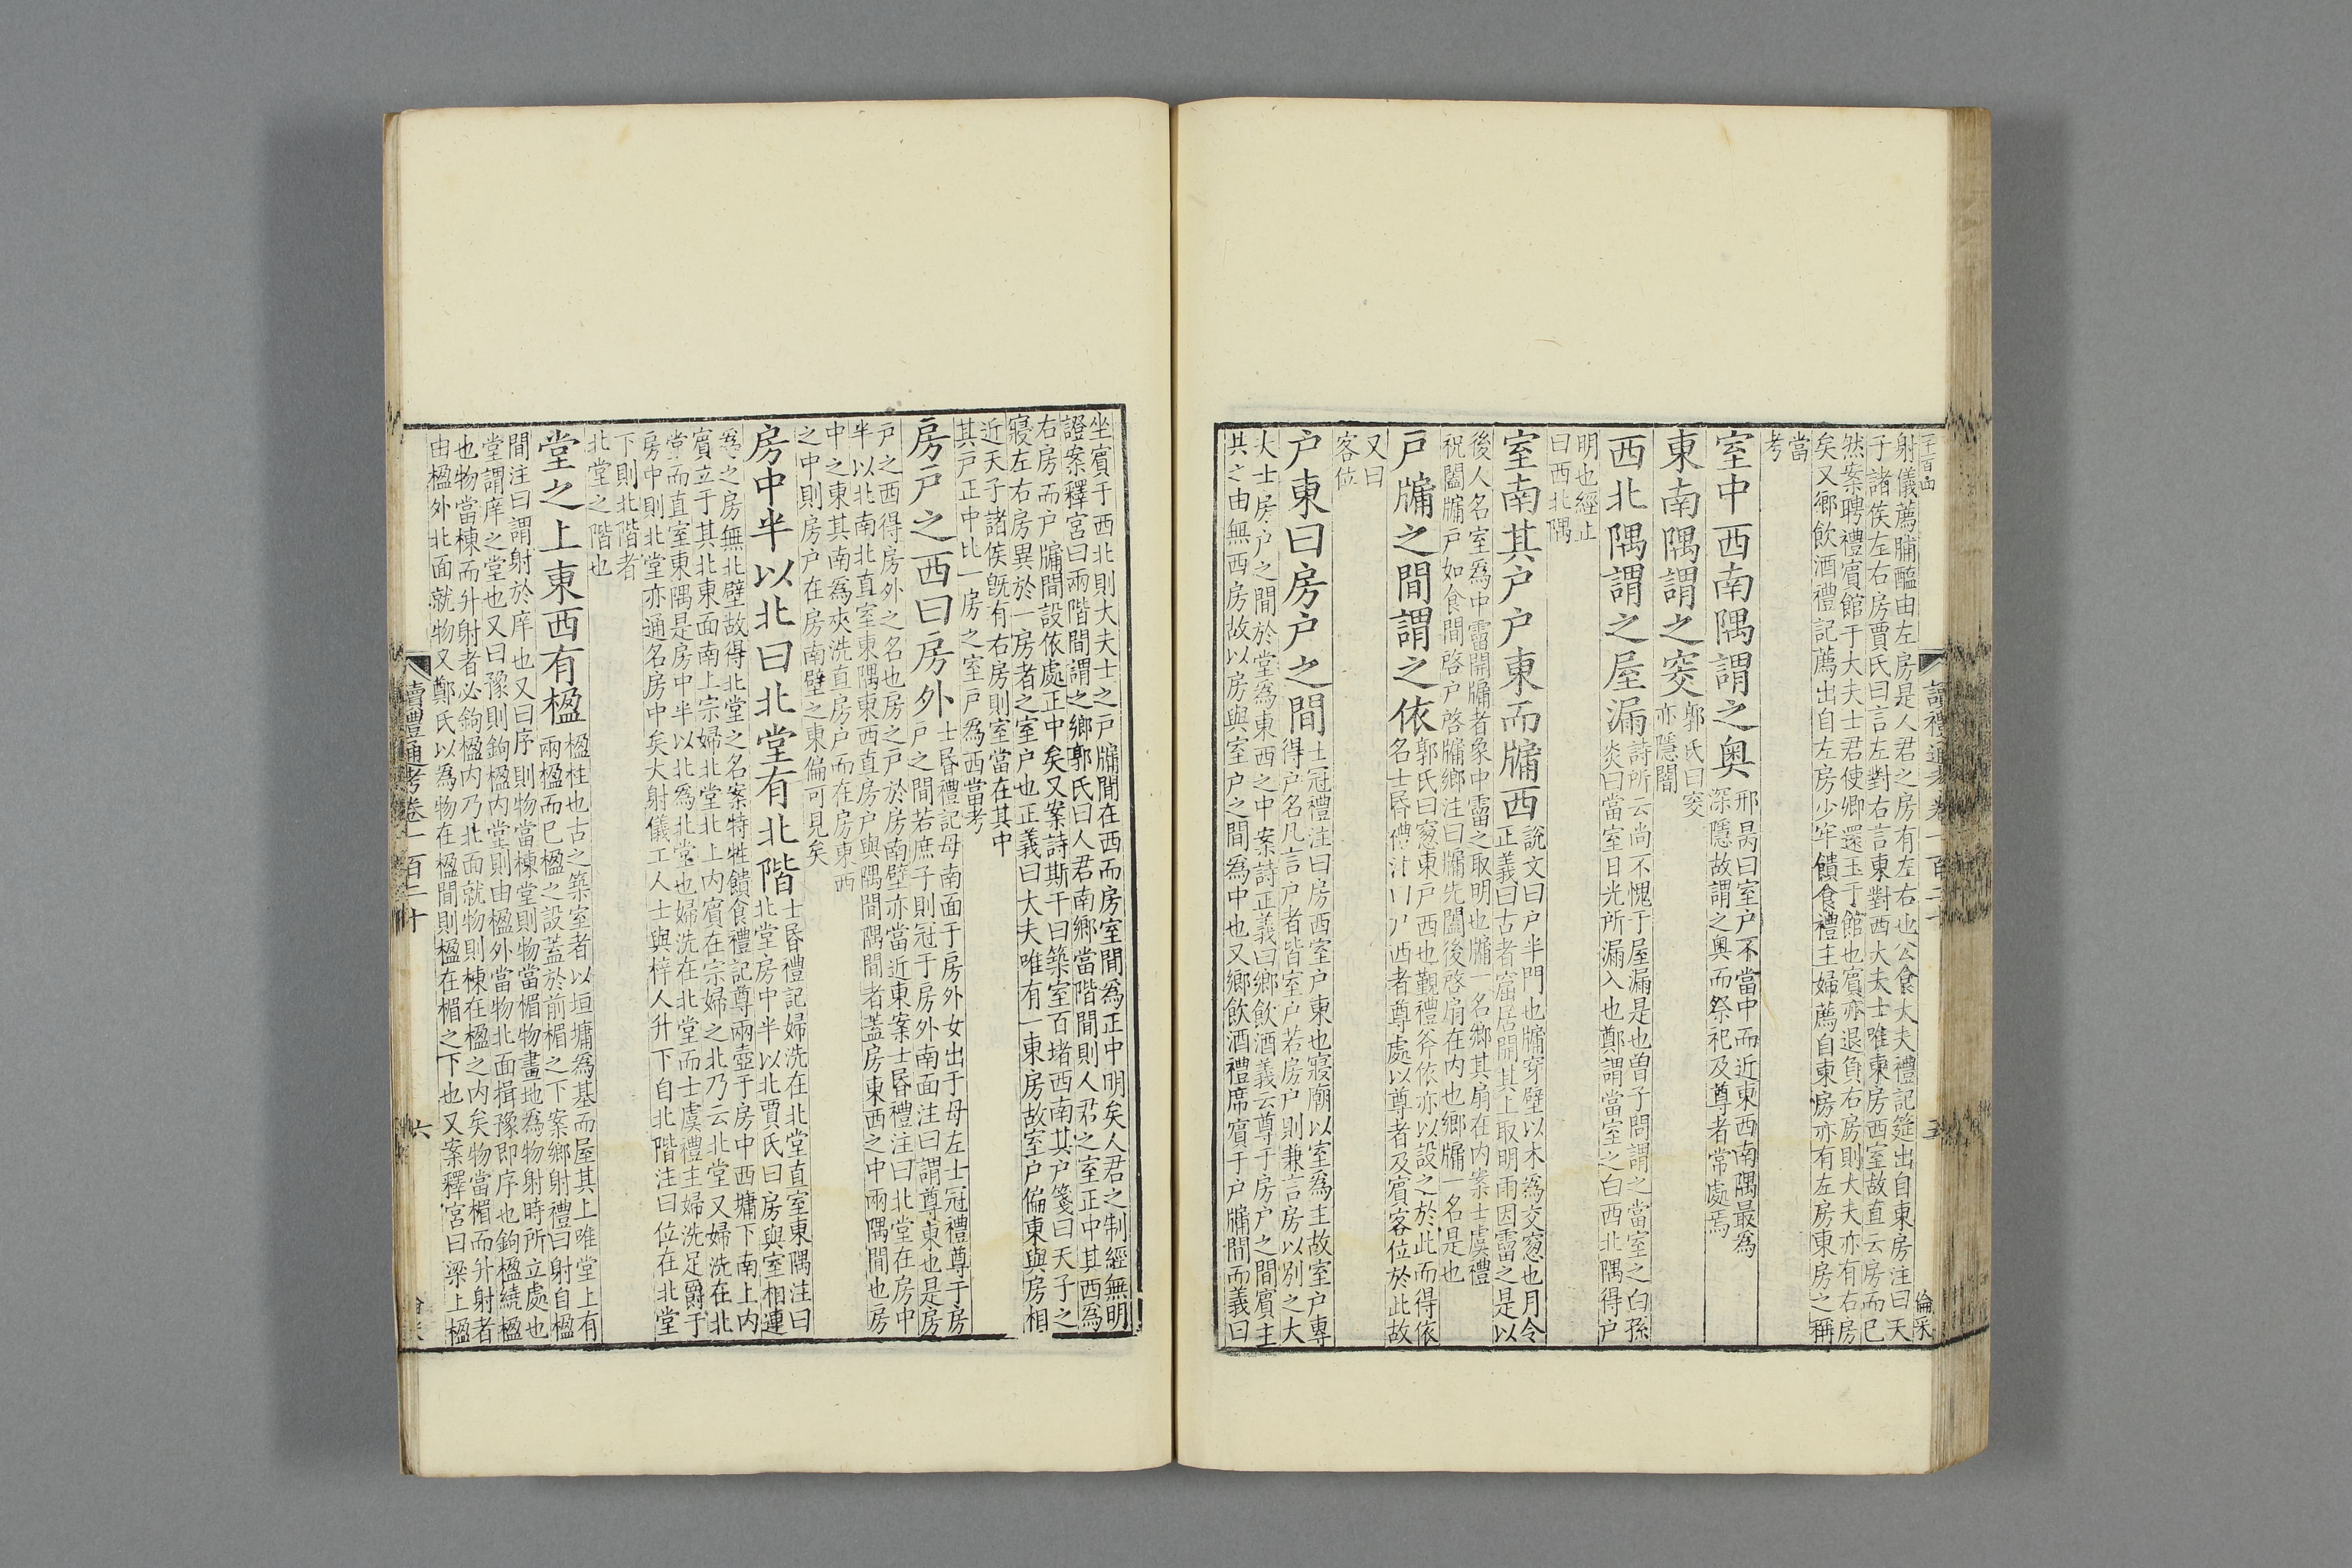 射儀薦脯醢由左房是人君之房有左右也公食大夫禮記筵出自東房注曰天
子諸侯左右房賈氏曰言左對右言東對西大夫士唯東房西室故直云房而已
然案聘禮賔館于大夫士君使卿還玉于館也賔亦退負右房則大夫亦有右房
矣又鄉飲酒禮記薦出自左房少牢饋食禮主婦薦自東房亦有左房東房之稱
當
考
室中西南隅謂之奥
邢昺曰室户不當中而近東西南隅最為
深隱故謂之奥而祭祀及尊者常處焉
東南隅謂之窔
郭氏曰窔
亦隱闇
西北隅謂之屋漏
詩所云尚不愧于屋漏是也曽子問謂之當室之白孫
炎曰當室日光所漏入也鄭謂當室之白西北隅得户
明也經止
曰西北隅
室南其户户東而牖西
説文曰户半門也牖穿壁以木為交窓也月令
正義曰古者窟居開其上取明雨因霤之是以
後人名室為中霤開牖者象中霤之取明也牖一名鄉其扇在内案士虞禮
祝闔牖户如食間啓户啓牖鄉注曰牖先闔後啓扇在内也鄉牖一名是也
戸牖之間謂之依
郭氏曰窓東戸西也覲禮斧依亦以設之於此而得依
名士昏禮注曰户西者尊處以尊者及賔客位於此故
又曰
客位
户東曰房户之間
士冠禮注曰房西室户東也寢廟以室為主故室户專
得户名凡言户者皆室户若房户則兼言房以别之大
夫士房户之間於堂為東西之中案詩正義曰鄉飲酒義云尊于房户之間賔主
共之由無西房故以房與室户之間為中也又鄉飲酒禮席賔于户牖間而義曰
讀禮通考卷一百二十
五
坐賔于西北則大夫士之戸牖間在西而房室間為正中明矣人君之制經無明
證案釋宫曰兩階間謂之鄉郭氏曰人君南鄉當階間則人君之室正中其西為
右房而户牖間設依處正中矣又案詩斯干曰築室百堵西南其户箋曰天子之
寢左右房異於一房者之室户也正義曰大夫唯有一東房故室户偏東與房相
近天子諸侯旣有右房則室當在其中
其戸正中比一房之室戸為西當考
房戸之西曰房外
士昏禮記母南面于房外女出于母左士冠禮尊于房
戸之間若庶子則冠于房外南面注曰謂尊東也是房
戸之西得房外之名也房之戸於房南壁亦當近東案士昏禮注曰北堂在房中
半以北南北直室東隅東西直房戸與隅間隅間者蓋房東西之中兩隅間也房
中之東其南為夾洗直房戸而在房東西
之中則房戸在房南壁之東偏可見矣
房中半以北曰北堂有北階
士昏禮記婦洗在北堂直室東隅注曰
北堂房中半以北賈氏曰房與室相連
為之房無北壁故得北堂之名案特牲饋食禮記尊兩壺于房中西墉下南上内
賔立于其北東面南上宗婦北堂北上内賔在宗婦之北乃云北堂又婦洗在北
堂而直室東隅是房中半以北為北堂也婦洗在北堂而士虞禮主婦洗足爵于
房中則北堂亦通名房中矣大射儀工人士與梓人升下自北階注曰位在北堂
下則北階者
北堂之階也
堂之上東西有楹
楹柱也古之築室者以垣墉為基而屋其上唯堂上有
兩楹而已楹之設蓋於前楣之下案鄉射禮曰射自楹
間注曰謂射於庠也又曰序則物當棟堂則物當楣物畫地為物射時所立處也
堂謂庠之堂也又曰豫則鉤楹内堂則由楹外當物北面揖豫即序也鉤楹繞楹
也物當棟而升射者必鉤楹内乃北面就物則棟在楹之内矣物當楣而升射者
由楹外北面就物又鄭氏以為物在楹間則楹在楣之下也又案釋宫曰梁上楹
讀禮通考卷一百二十
六